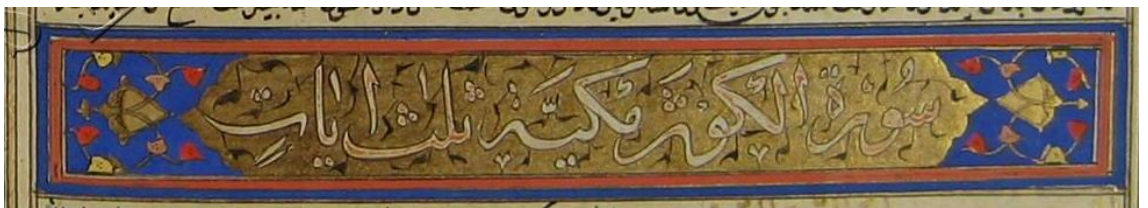 سُورَة الكَوثَر مَكيَّة ثلث اٰيَاتٍ